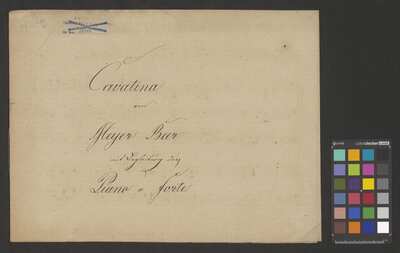 Cavatina
von
Meyer Beer
mit Begleitung des
Piano-forte